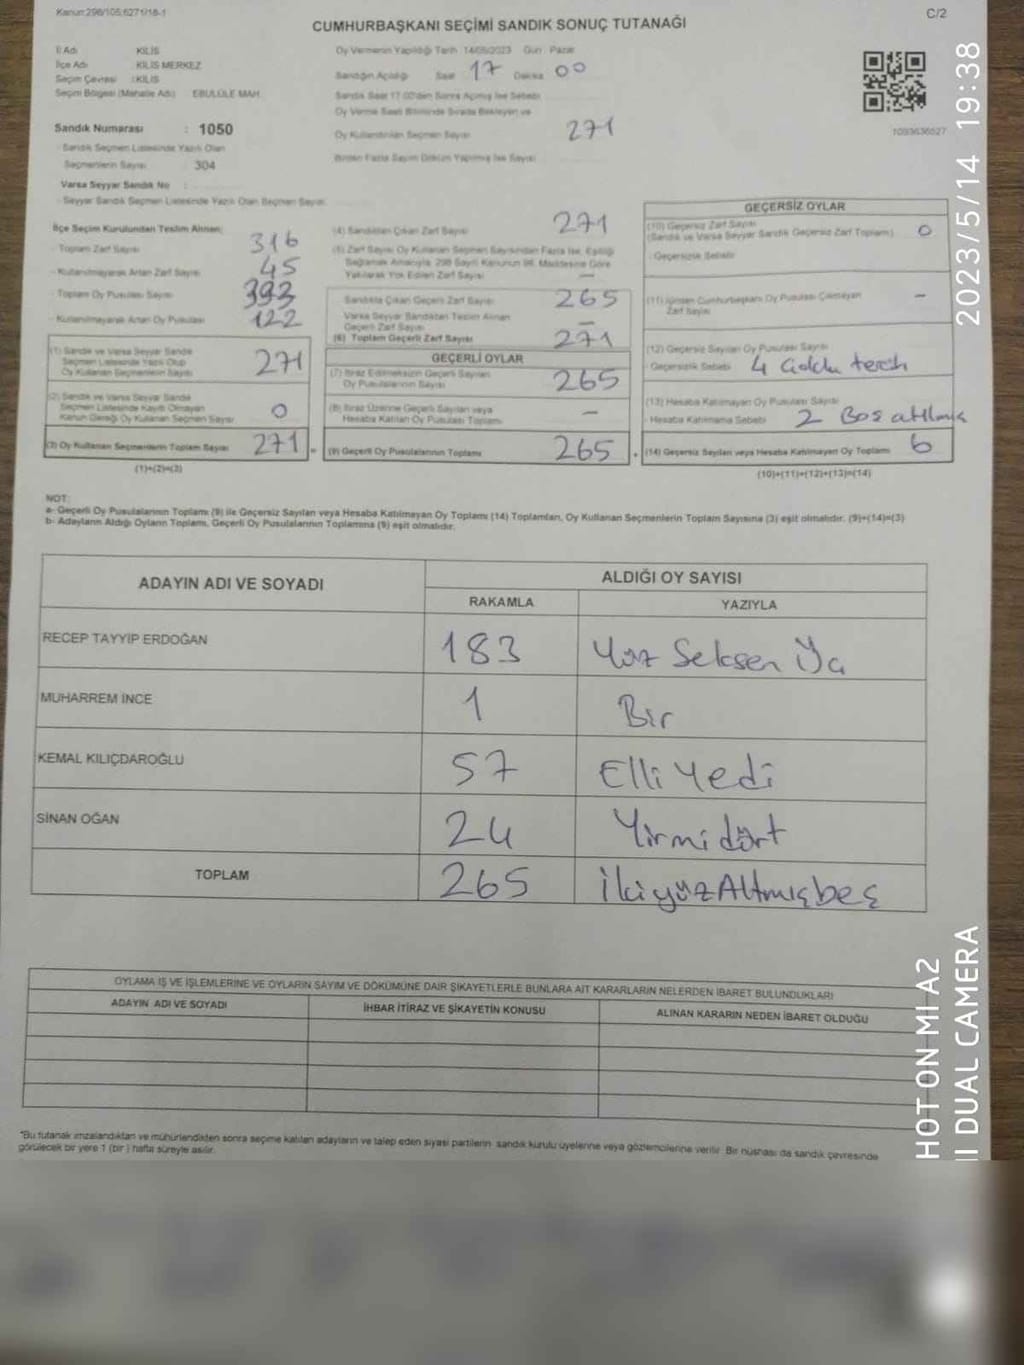 Kanun:298/105;6271/18-1
C/2
CUMHURBAŞKANI SEÇİMİ SANDIK SONUÇ TUTANAĞI
İl Adı KİLİS
İlçe Adı KİLİS MERKEZ
Seçim Çevresi : KİLİS
Seçim Bölgesi (Mahalle Adı) EBULÜLE MAH.
Sandık Numarası : 1050
Sandık Seçmen Listesinde Yazılı Olan
Seçmenlerin Sayısı 304
Varsa Seyyar Sandık No :
Seyyar Sandık Seçmen Listesinde Yazılı Olan Seçmen Sayısı
Oy Vermenin Yapıldığı Tarih 14/05/2023 Gün : Pazar
Sandığın Açılışı Saat 17 Dakika 00
Sandık Saat 17.00'den Sonra Açılmış İse Sebebi
Oy Verme Saati Bitiminde Sırada Bekleyen ve
Oy Kullandırılan Seçmen Sayısı 271
Birden Fazla Sayım Döküm Yapılmış İse Sayısı
1093636527
İlçe Seçim Kurulundan Teslim Alınan;
Toplam Zarf Sayısı 316
Kullanılmayarak Artan Zarf Sayısı 45
Toplam Oy Pusulası Sayısı 393
Kullanılmayarak Artan Oy Pusulası 122
(1) Sandık ve Varsa Seyyar Sandık
Seçmen Listesinde Yazılı Olup
Oy Kullanan Seçmenlerin Sayısı 271
(2) Sandık ve Varsa Seyyar Sandık
Seçmen Listesinde Kayıtlı Olmayan
Kanun Gereği Oy Kullanan Seçmen Sayısı 0
(3) Oy Kullanan Seçmenlerin Toplam Sayısı 271
(1)+(2)=(3)
(4) Sandıktan Çıkan Zarf Sayısı 271
(5) Zarf Sayısı Oy Kullanan Seçmen Sayısından Fazla İse, Eşitliği
Sağlamak Amacıyla 298 Sayılı Kanunun 98. Maddesine Göre
Yakılarak Yok Edilen Zarf Sayısı —
Sandıkta Çıkan Geçerli Zarf Sayısı 265
Varsa Seyyar Sandıktan Teslim Alınan
Geçerli Zarf Sayısı —
(6) Toplam Geçerli Zarf Sayısı 271
GEÇERLİ OYLAR
(7) İtiraz Edilmeksizin Geçerli Sayılan
Oy Pusulalarının Sayısı 265
(8) İtiraz Üzerine Geçerli Sayılan veya
Hesaba Katılan Oy Pusulası Toplamı —
(9) Geçerli Oy Pusulalarının Toplamı 265
GEÇERSİZ OYLAR
(10) Geçersiz Zarf Sayısı
(Sandık ve Varsa Seyyar Sandık Geçersiz Zarf Toplamı) 0
Geçersizlik Sebebi
(11) İçinden Cumhurbaşkanı Oy Pusulası Çıkmayan
Zarf Sayısı —
(12) Geçersiz Sayılan Oy Pusulası Sayısı
Geçersizlik Sebebi 4
(13) Hesaba Katılmayan Oy Pusulası Sayısı
Hesaba Katılmama Sebebi 2 Boş atılmış
(14) Geçersiz Sayılan veya Hesaba Katılmayan Oy Toplamı 6
(10)+(11)+(12)+(13)=(14)
NOT:
a- Geçerli Oy Pusulalarının Toplamı (9) ile Geçersiz Sayılan veya Hesaba Katılmayan Oy Toplamı (14) Toplamları, Oy Kullanan Seçmenlerin Toplam Sayısına (3) eşit olmalıdır. (9)+(14)=(3)
b- Adayların Aldığı Oyların Toplamı, Geçerli Oy Pusulalarının Toplamına (9) eşit olmalıdır.
ADAYIN ADI VE SOYADI
ALDIĞI OY SAYISI
RAKAMLA YAZIYLA
RECEP TAYYİP ERDOĞAN 183 Yüz Seksen
MUHARREM İNCE 1 Bir
KEMAL KILIÇDAROĞLU 57 Elli Yedi
SİNAN OĞAN 24 Yirmi dört
TOPLAM 265 İkiyüzAltmışbeş
OYLAMA İŞ VE İŞLEMLERİNE VE OYLARIN SAYIM VE DÖKÜMÜNE DAİR ŞİKAYETLERLE BUNLARA AİT KARARLARIN NELERDEN İBARET BULUNDUKLARI
ADAYIN ADI VE SOYADI İHBAR İTİRAZ VE ŞİKAYETİN KONUSU ALINAN KARARIN NEDEN İBARET OLDUĞU
*Bu tutanak imzalandıktan ve mühürlendikten sonra seçime katılan adayların ve talep eden siyasi partilerin sandık kurulu üyelerine veya gözlemcilerine verilir. Bir nüshası da sandık çevresinde
görülecek bir yere 1 (bir) hafta süreyle asılır.
2023/5/14 19:38
HOT ON MI A2
II DUAL CAMERA